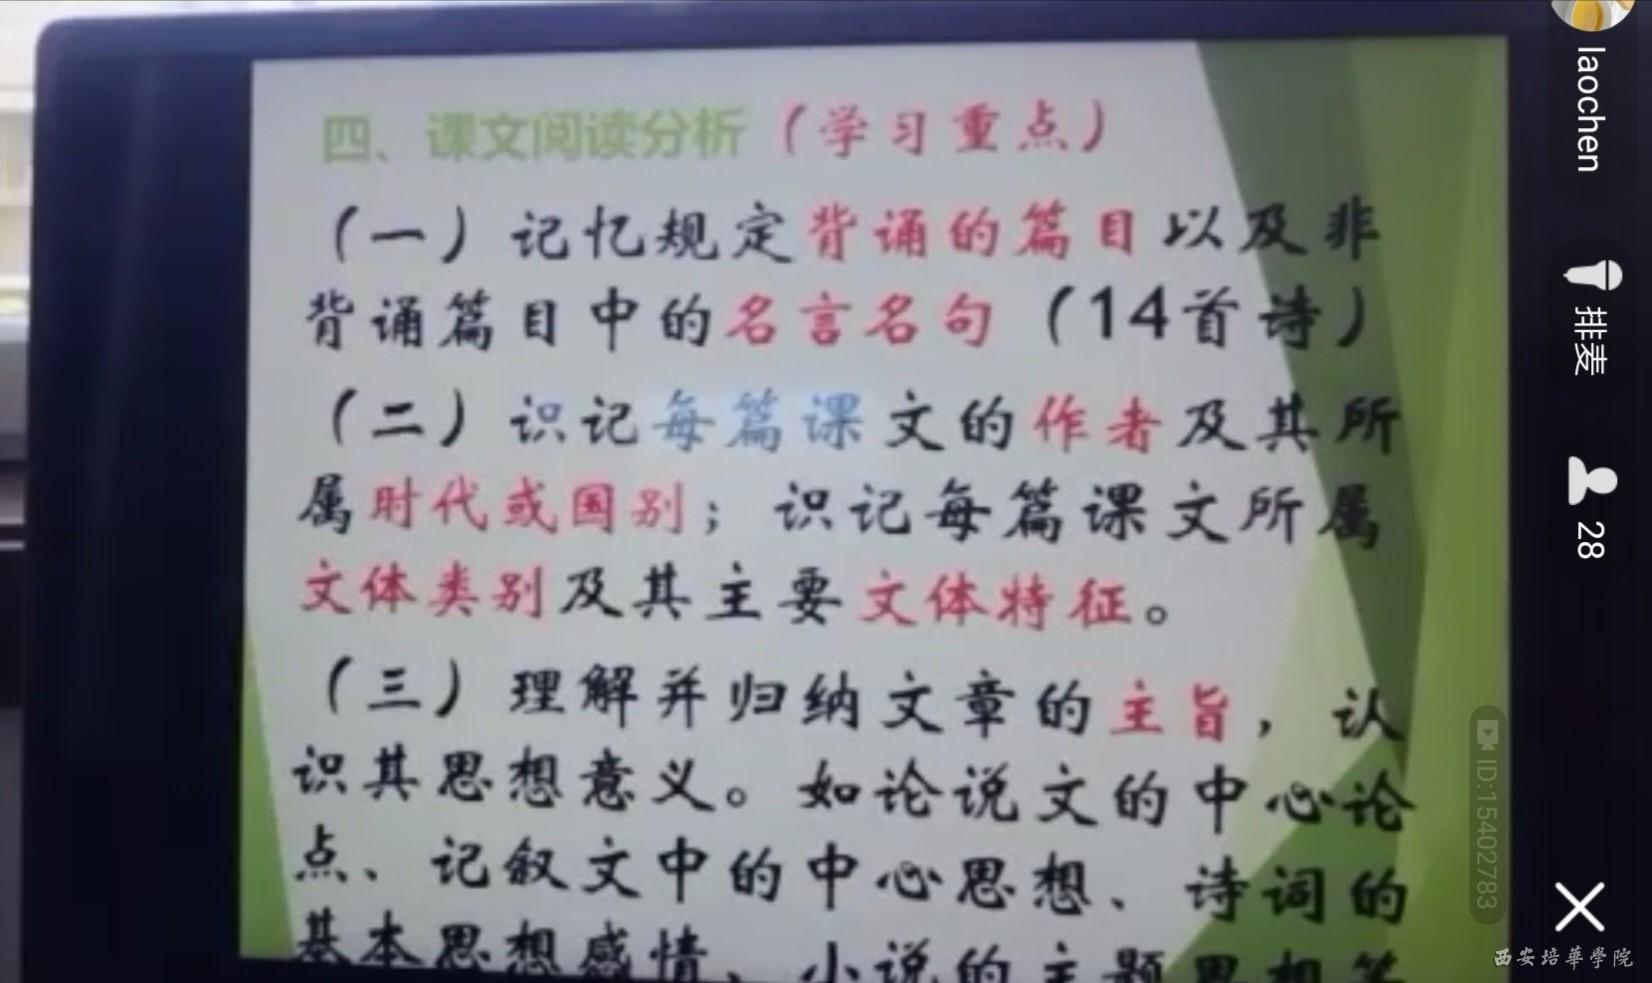 四、课文阅读分析（学习重点）
（一）记忆规定背诵的篇目以及非
背诵篇目中的名言名句（14首诗）
（二）识记每篇课文的作者及其所
属时代或国别；识记每篇课文所属
文体类别及其主要文体特征。
（三）理解并归纳文章的主旨，认
识其思想意义。如论说文的中心论
点、记叙文中的中心思想、诗词的
基本思想感情、小说的主题思想等
laochen
排麦
28
ID:15402783
西安培華學院